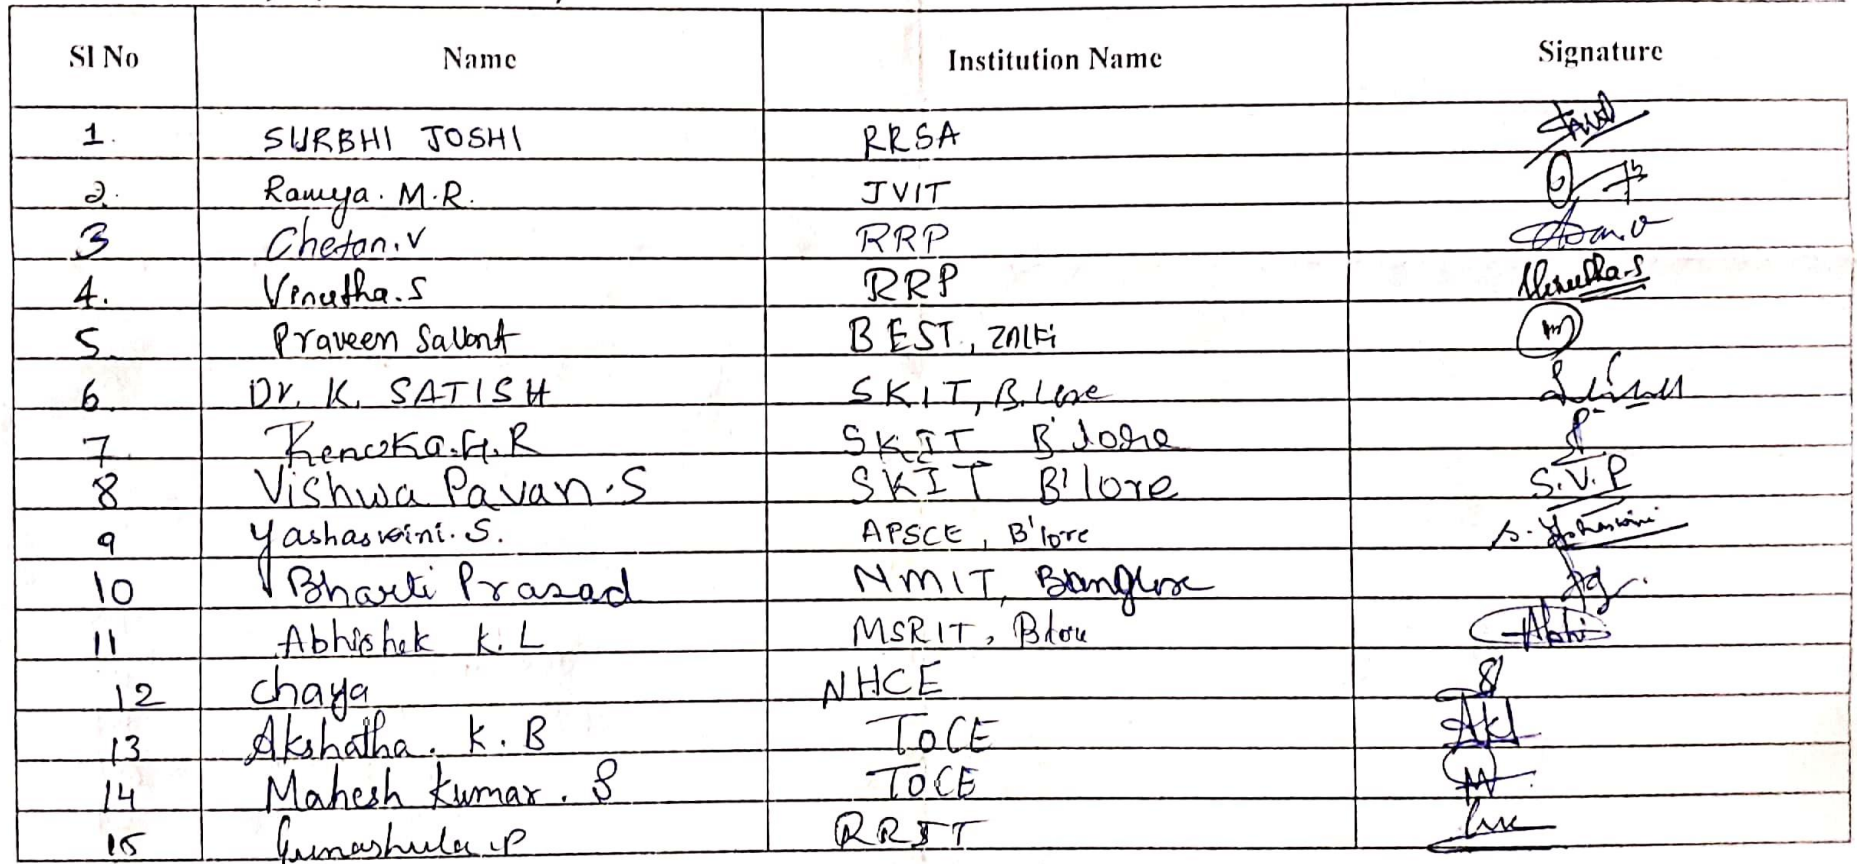 Sl No Name Institution Name Signature
1. SURBHI JOSHI RRSA
2. Ramya. M.R. JVIT
3 Chetan.V RRP
4. Vinutha.S RRP Vinutha.S
5. Praveen Savant BEST,
6. Dr. K. SATISH SKIT, B.lore
7 Renuka.H.R SKIT B'lore
8 Vishwa Pavan.S SKIT B'lore S.V.P
9 Yashaswini.S. APSCE, B'lore S. Yashaswini
10 Bharti Prasad NMIT, Banglore
11 Abhishek K.L MSRIT, Blore Abhi
12 Chaya NHCE
13 Akshatha. K.B TOCE
14 Mahesh Kumar. S TOCE
15 RRIT